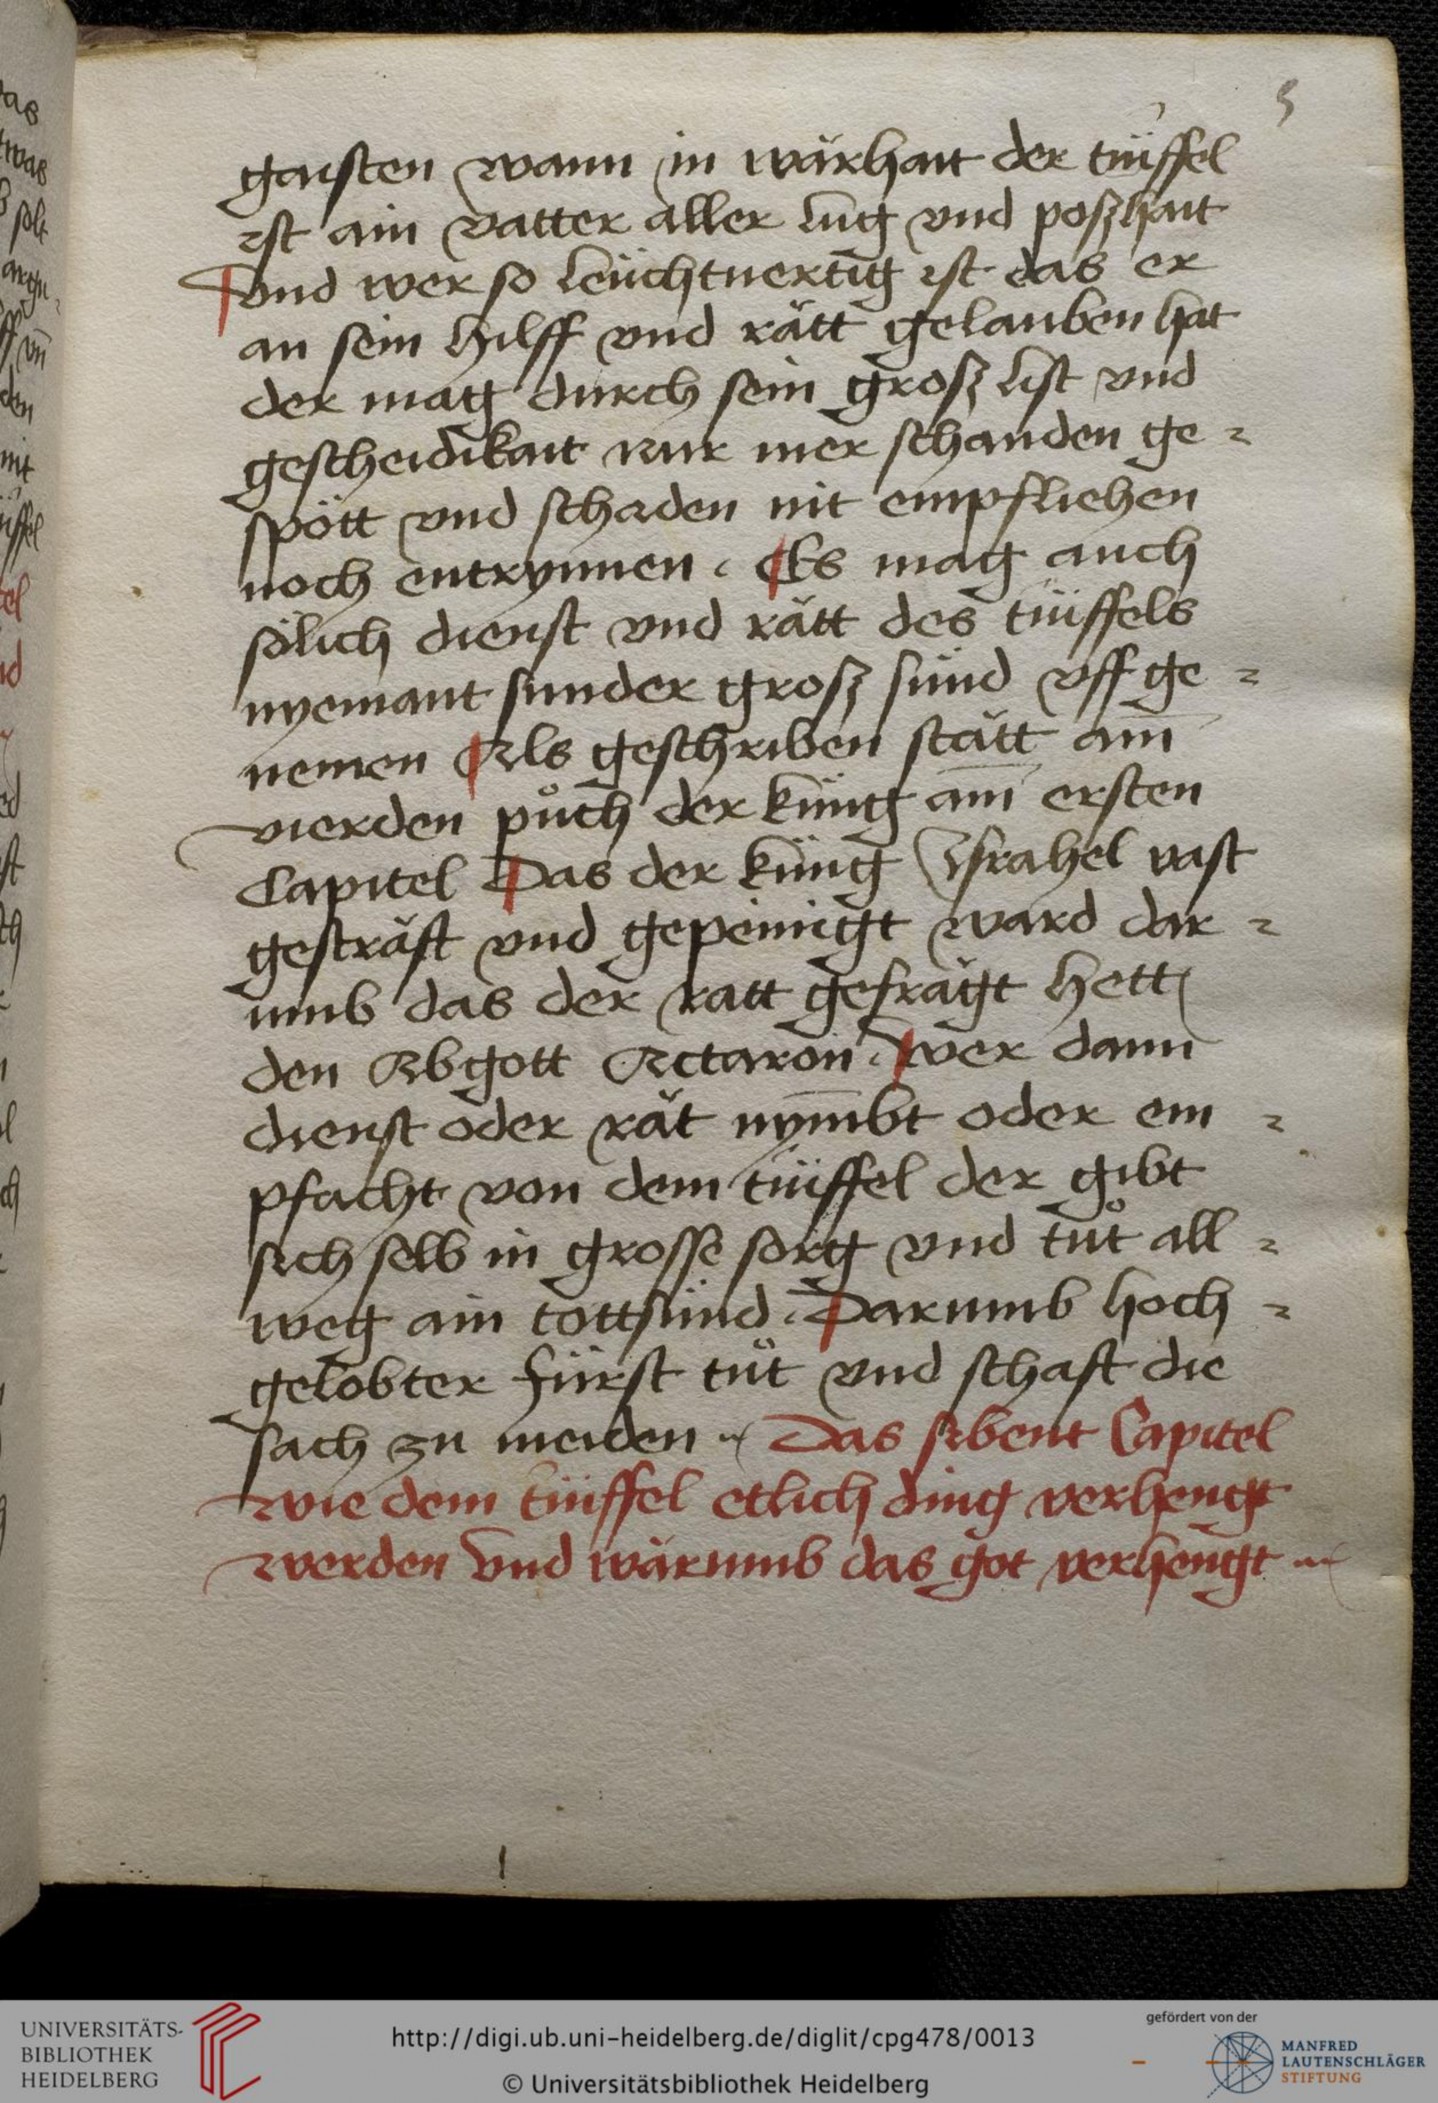 5
gaisten wann in wärhait der tüffel
ist ain vatter aller lug vnd poszhait
Vnd wer so leüchtuertig ist das er
an sein hilff vnd rätt gelauben hat
der mag durch sein grosz list vnd
gescheidikait nur mer schanden ge=
spött vnd schaden nit empfliehen
noch entrynnen. Es mag auch
sölich dienst vnd rätt des tüffels
nyemant sunder grosz sünd vff ge=
nemen Als geschriben stätt am̄
vierden půch der küng am̄ ersten
Capitel Das der küng Israhel vast
gesträft vnd gepeinigt ward dar=
umb das der ratt gefrägt hett
den Abgott Actaron. wer dann
dienst oder rät nym̄bt oder em=
pfacht von dem tüffel der gibt
sich selb in grosse sorg vnd tůt all=
weg ain tottsünd. Darumb hoch=
gelobter fürst tůt vnd schaft die
sach zu meiden Das sibent Capitel
wie dem tüffel etlich ding verhengt
werden Vnd wärumb das got verhengt
as
twas
solt
vn̄
den
mit
üffel
tel
UNIVERSITÄTS-
BIBLIOTHEK
HEIDELBERG
http://digi.ub.uni-heidelberg.de/diglit/cpg478/0013
© Universitätsbibliothek Heidelberg
gefördert von der
MANFRED
LAUTENSCHLÄGER
STIFTUNG